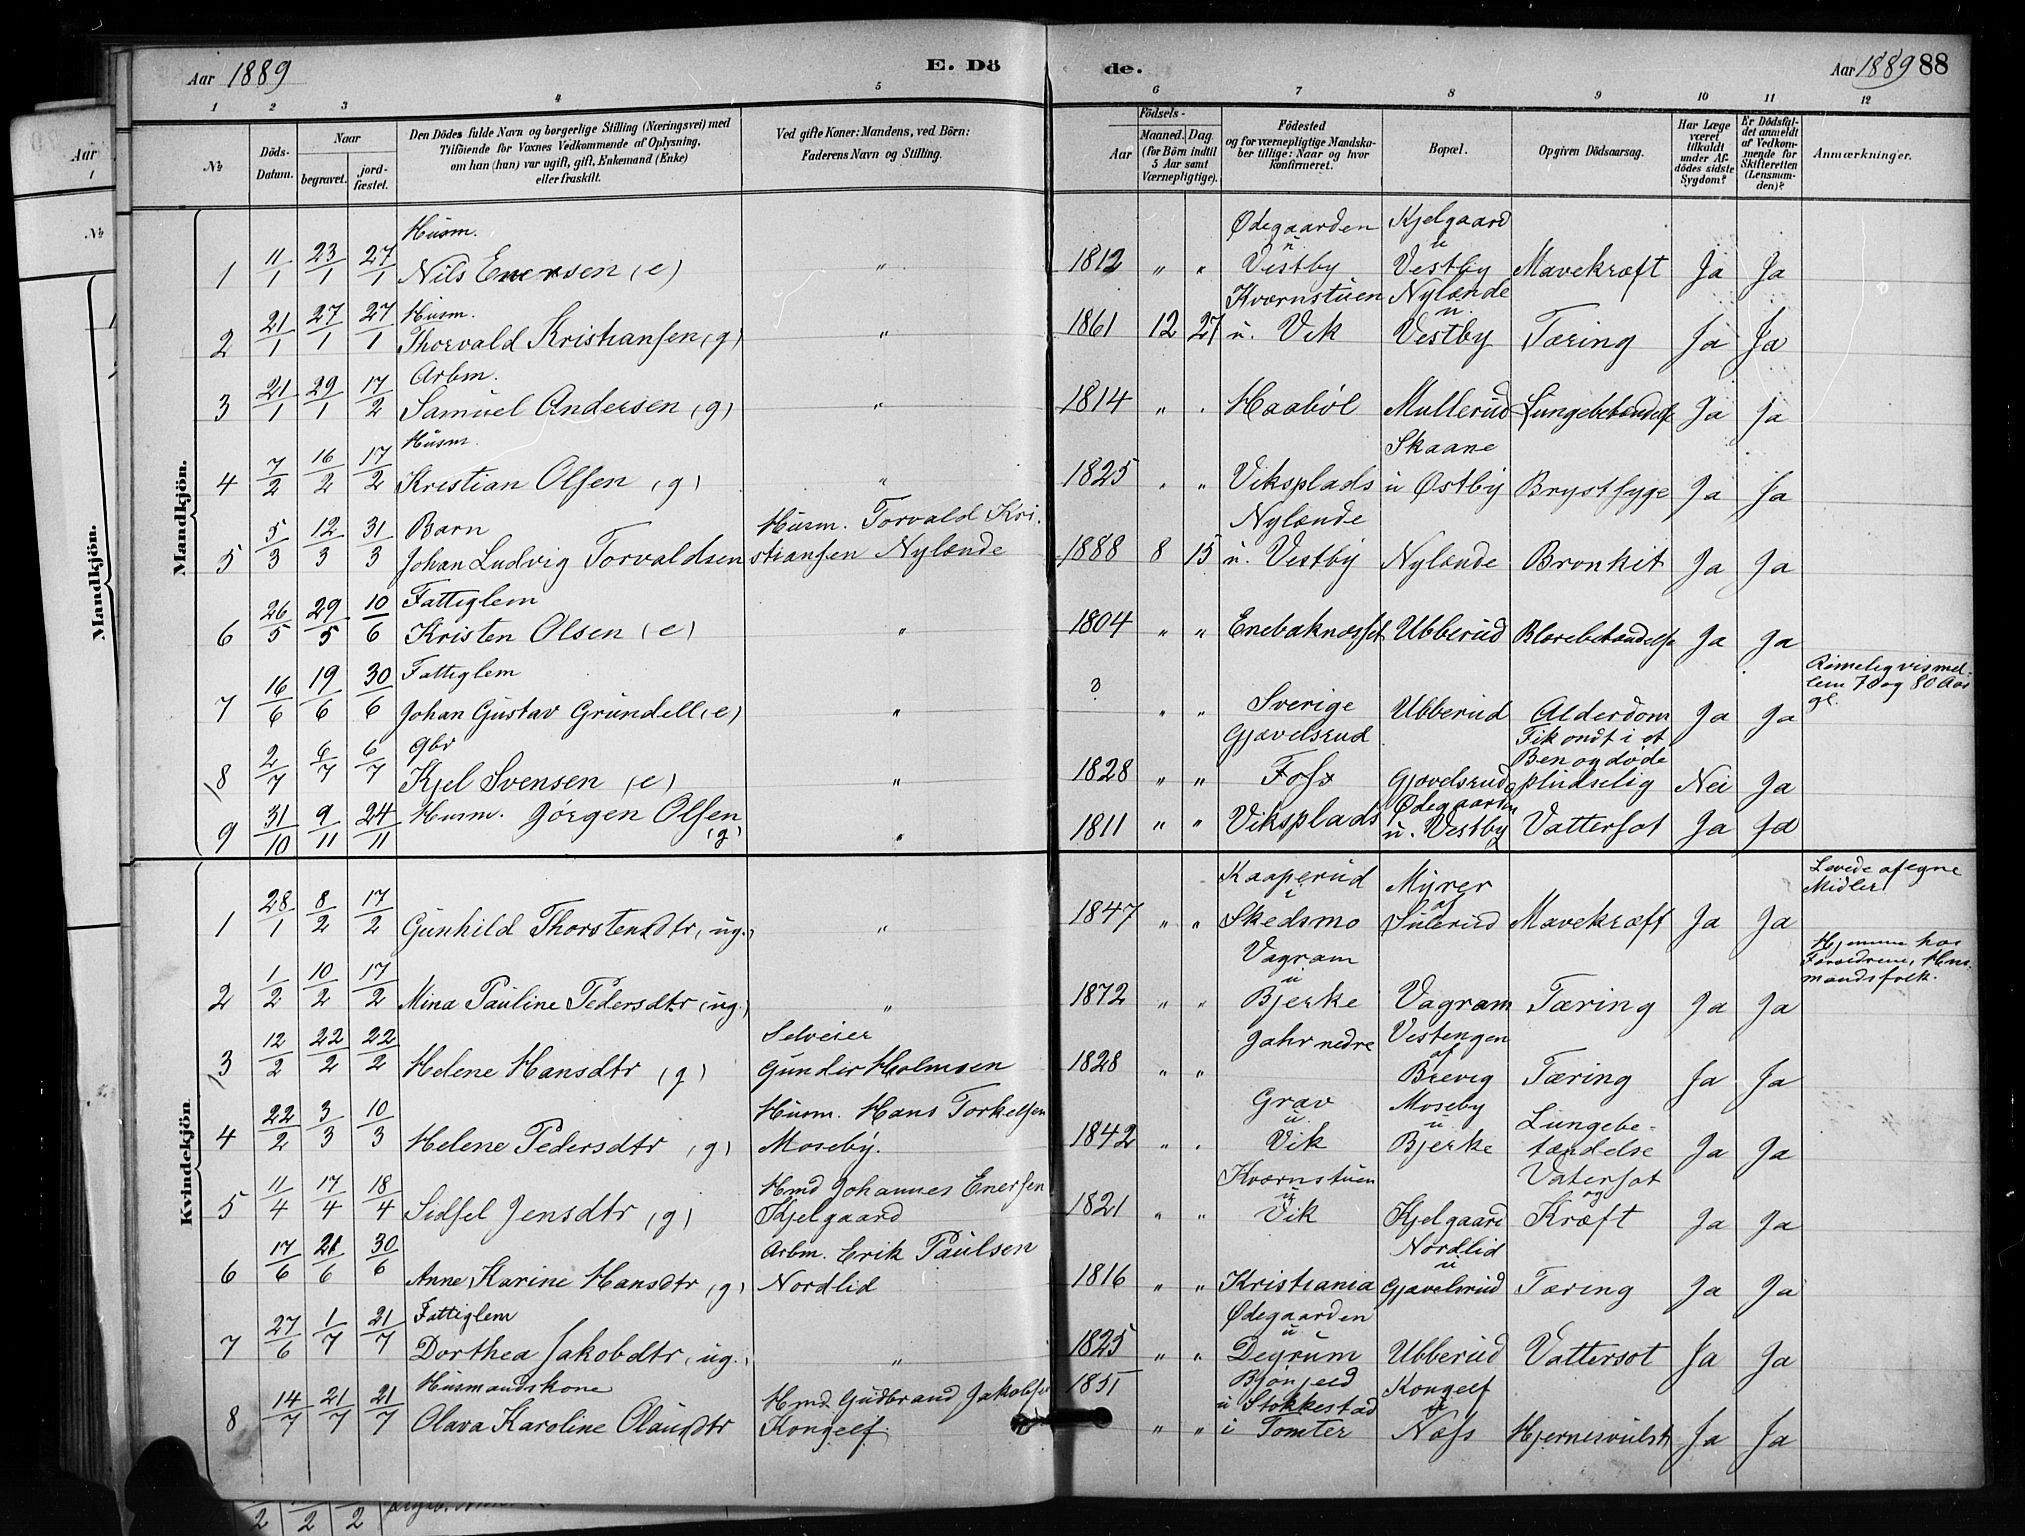 Aar 1889 E. Dö
de. Aar 1889 88
1 2 3 4 5 6 7 8 9 10 11 12
№ Döds-Datum. Naar begravet. jordfæstet. Den Dödes fulde Navn og borgerlige Stilling (Næringsvei) med Tilföiende for Voxnes Vedkommende af Oplysning, om han (hun) var ugift, gift, Enkemand (Enke) eller fraskilt. Ved gifte Koner: Mandens, ved Börn: Faderens Navn og Stilling. Födsels- Aar Maaned. Dag. (for Börn indtil 5 Aar samt Værnepligtige). Födested og for værnepligtige Mandskaber tillige: Naar og hvor konfirmeret. Bopæl. Opgiven Dödsaarsag. Har Læge været tilkaldt under Afdödes sidste Sygdom? Er Dödsfaldet anmeldt af Vedkommende for Skifteretten (Lensmanden)? Anmærkninger.
Mandkjön.
1 11/1 23/1 27/1 Husm. Nils Enersen (e) " 1812 " " Ødegaarden u Vestby Kjelgaard u Vestby Mavekræft Ja Ja
2 21/1 27/1 27/1 Husm. Thorvald Kristiansen (g) " 1861 12 27 Kværnstuen u. Vik Nylænde u. Vestby Tæring Ja Ja
3 21/1 29/1 17/2 Arbm. Samuel Andersen (g) " 1814 " " Haabøl Mullerud Lungebetændelse Ja Ja
4 7/2 16/2 17/2 Husm. Kristian Olsen (g) " 1825 " " Viksplads Skaane u Østby Brystsyge Ja Ja
5 5/3 12/3 31/3 Barn Johan Ludvig Torvaldsen Husm. Torvald Kristiansen Nylænde 1888 8 15 Nylænde u. Vestby Nylænde Bronkit Ja Ja
6 26/5 29/5 10/6 Fattiglem Kristen Olsen (e) " 1804 " " Enebaknæsset Ubberud Blærebetændelse Ja Ja
7 16/6 19/6 30/6 Fattiglem Johan Gustav Grundell (e) " ? " " Sverige Ubberud Alderdom Ja Ja Rimeligvis mellem 70 og 80 Aar gl.
8 2/7 6/7 6/7 gbr Kjel Svensen (e) " 1828 " " Gjævelsrud Foss Gjævelsrud Fik ondt i et Ben og døde pludselig Nei Ja
9 31/10 9/11 24/11 Husm. Jørgen Olsen (g) " 1811 " " Viksplads Ødegaarden u. Vestby Vattersot Ja Ja
Kvindekjön
1 28/1 8/2 17/2 Gunhild Thorstensdtr (ug.) " 1847 " " Kaaperud i Skedsmo Myrer af Sulerud Mavekræft Ja Ja Levede af egne Midler
2 1/2 10/2 17/2 Mina Pauline Pedersdtr (ug.) " 1872 " " Vagram u Bjerke Vagram Tæring Ja Ja Hjemme hos Forældrene, Husmandsfolk.
3 12/2 22/2 22/2 Helene Hansdtr (g) Selveier Gunder Holmsen 1828 " " Jahr nedre Vestengen af Brevig Tæring Ja Ja
4 22/2 3/3 10/3 Helene Pedersdtr (g) Husm. Hans Torkelsen Moseby. 1842 " " Grav u Vik Moseby u Bjerke Lungebetændelse Ja Ja
5 11/4 17/4 18/4 Sidsel Jensdtr (g) Hmd Johannes Enersen Kjelgaard 1821 " " Kværnstuen u Vik Kjelgaard Vatersot og Kræft Ja Ja
6 17/6 21/6 30/6 Anne Karine Hansdtr (g) Arbm. Erik Paulsen Nordlid 1816 " " Kristiania Nordlid u Gjævelsrud Tæring Ja Ja
7 27/6 1/7 21/7 Fattiglem Dorthea Jakobdtr (ug.) " 1825 " " Ødegaarden u Degrum Ubberud Vattersot Ja Ja
8 14/7 21/7 21/7 Husmandskone Olava Karoline Olausdtr Hmd Gudbrand Jakobsen Kongelf 1851 " " u Stokkestad i Tomter Kongelf u Næss Hjernesvulst Ja Ja
Aar
1
№
Mandkjön.